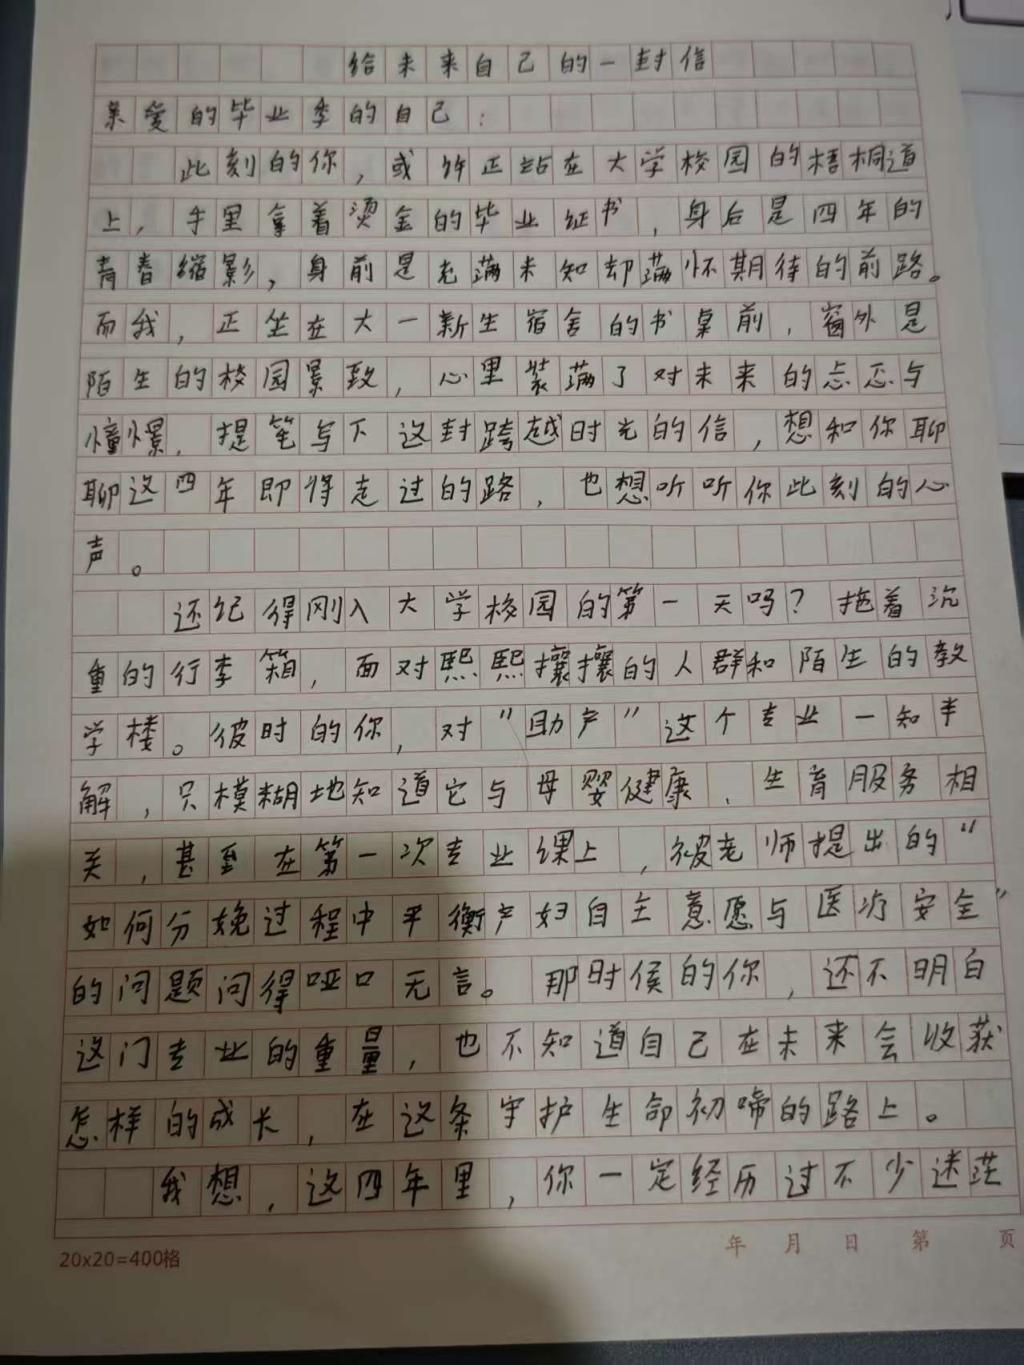 给未来自己的一封信
亲爱的毕业季的自己：
此刻的你，或许正站在大学校园的梧桐道
上，手里拿着烫金的毕业证书，身后是四年的
青春缩影，身前是充满未知却满怀期待的前路。
而我，正坐在大一新生宿舍的书桌前，窗外是
陌生的校园景致，心里装满了对未来的忐忑与
憧憬，提笔写下这封跨越时光的信，想和你聊
聊这四年即将走过的路，也想听听你此刻的心
声。
还记得刚入大学校园的第一天吗？拖着沉
重的行李箱，面对熙熙攘攘的人群和陌生的教
学楼。彼时的你，对“助产”这个专业一知半
解，只模糊地知道它与母婴健康、生育服务相
关，甚至在第一次专业课上，被老师提出的“
如何分娩过程中平衡产妇自主意愿与医疗安全”
的问题问得哑口无言。那时候的你，还不明白
这门专业的重量，也不知道自己在未来会收获
怎样的成长，在这条守护生命初啼的路上。
我想，这四年里，你一定经历过不少迷茫
20x20=400格
年 月 日 第 页